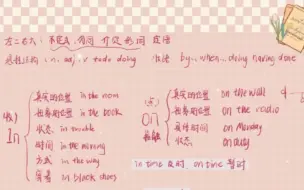 左二右六：不定A、
感胜结构：n. adj. v. todo doing
by... when... doing having done
in
真实的位置 in the room
抽象的位置 in the book
状态 in trouble
时间 in the morning
方式 in the way
穿着 in black shoes
on
真实的位置 on the wall
抽象的位置 on the radio
具体时间 on Monday
状态 on duty
in time 及时、on time 暂时